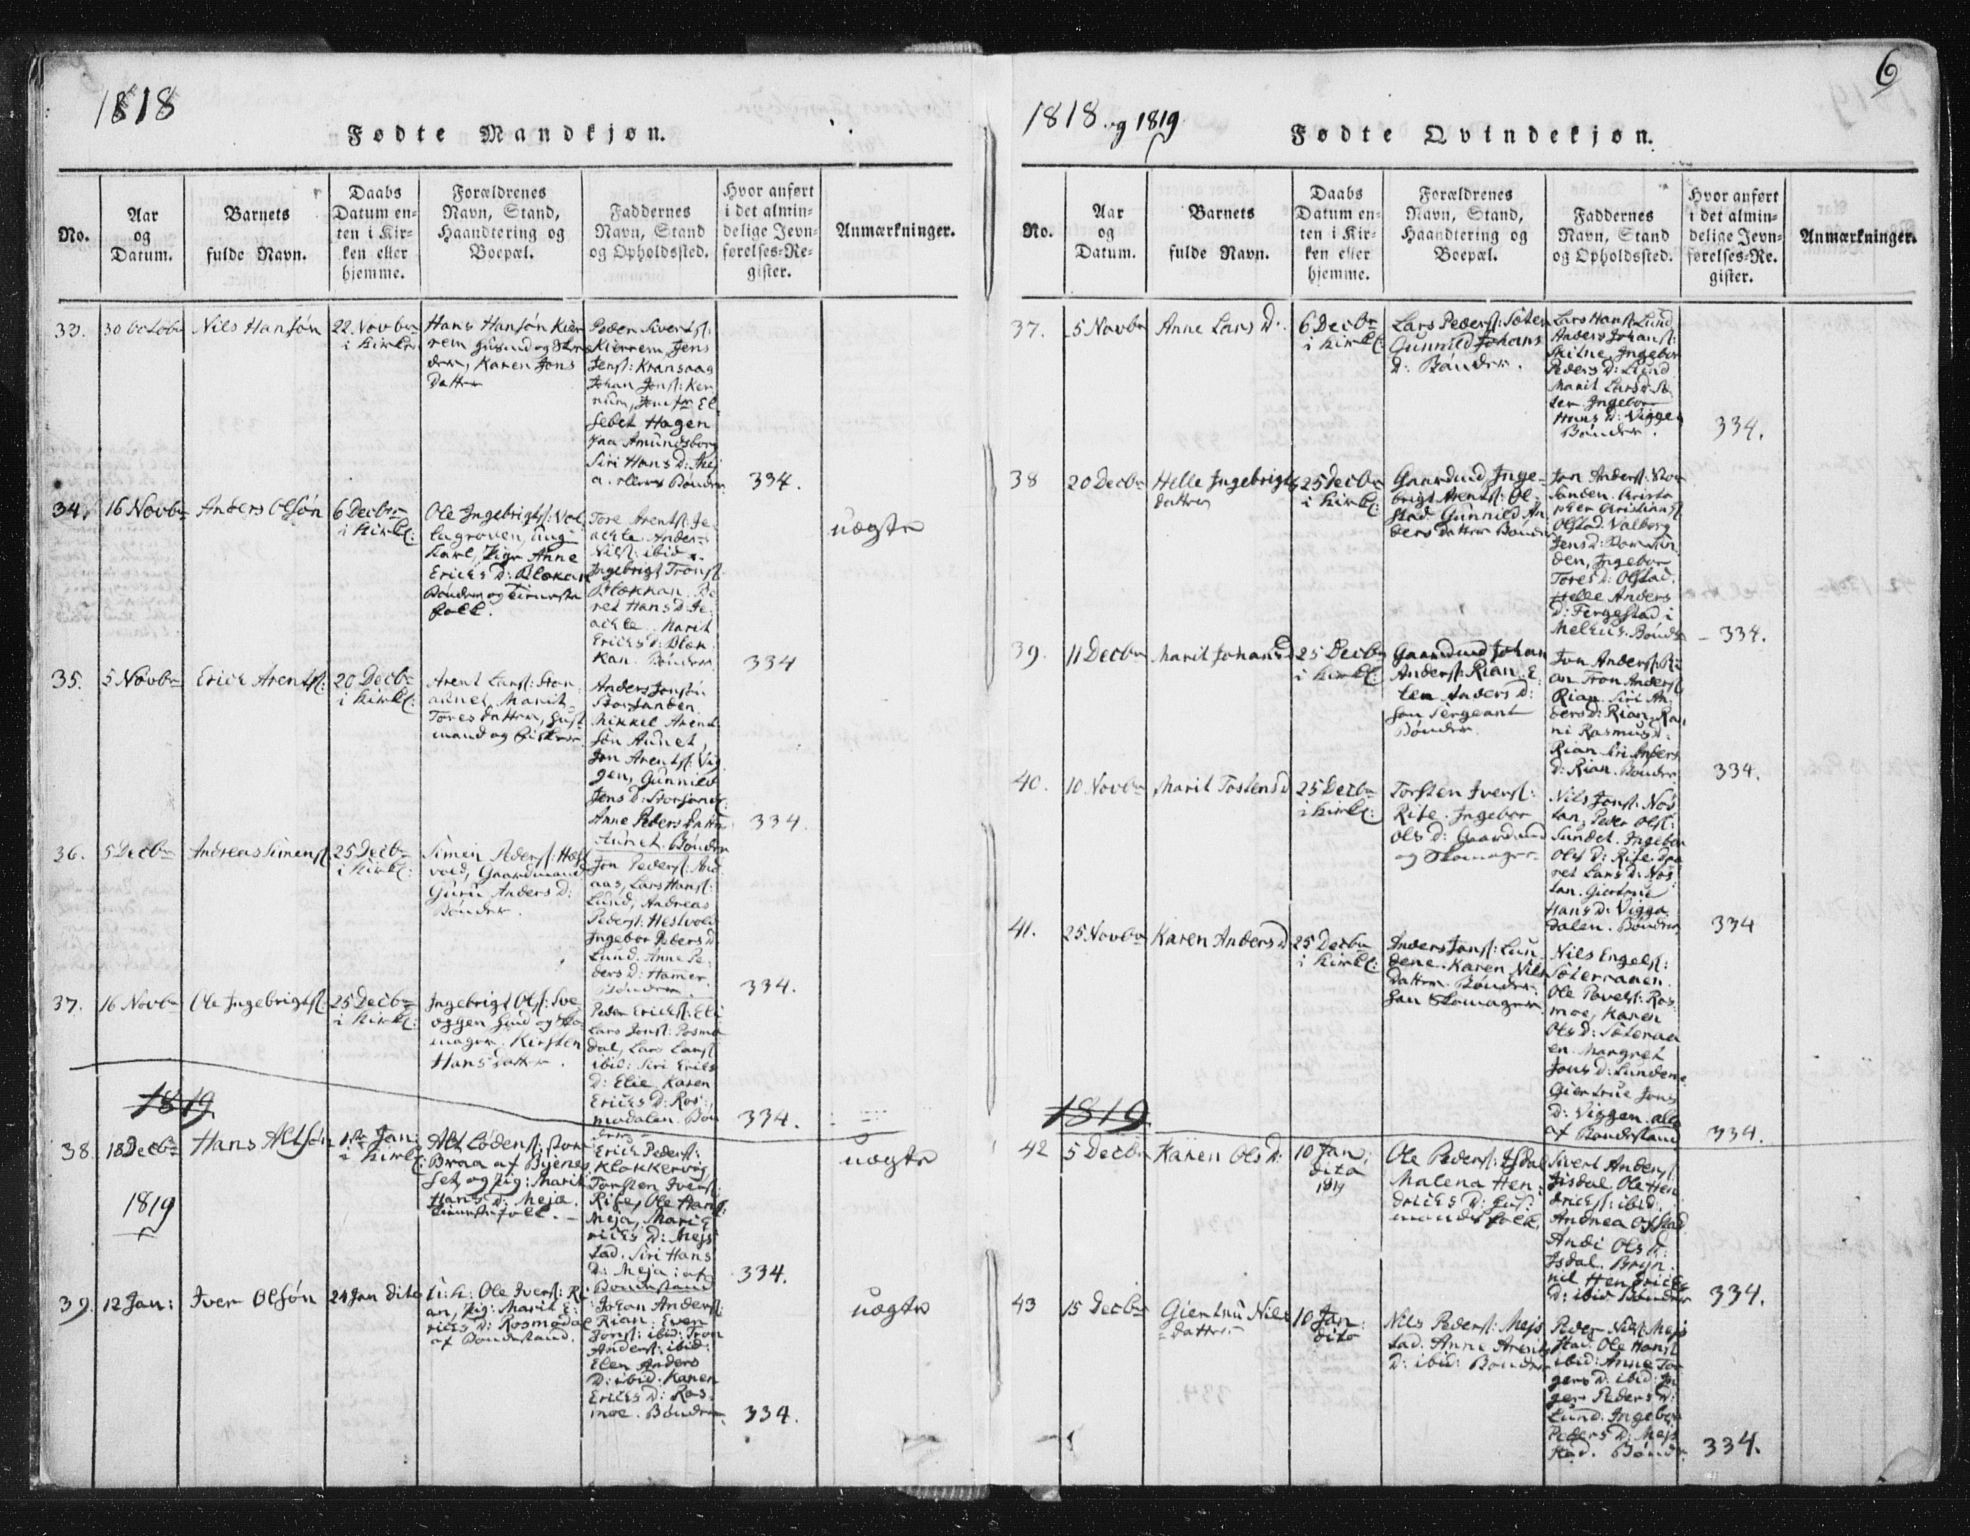 1818
Fødte Mandkjøn.
No.
Aar
og
Datum.
Barnets
fulde Navn.
Daabs
Datum en-
ten i Kir-
ken eller
hjemme.
Forældrenes
Navn, Stand,
Haandtering og
Boepæl.
Faddernes
Navn, Stand
og Opholdssted.
Hvor anført
i det almin-
delige Jevn-
førelses-Re-
gister.
Anmærkninger.
33.
30 Octobr
Nils Hansøn
22. Novbr
i Kirk:
Hans Hansøn Kier
rem
der, Karen Jons
Datter
Peder Sivertsf:
Kierrem, Jens
Jensf: Kransaag
Johan Jonsf: Ker
El
sebet Hagen
paa Amundsborg
Siri Hans D: Mej
a. Bønder
334.
34.
16 Novbr
Anders Olsøn
6 Decbr
i Kirk:
Ole Ingebrigtsf:
ung
karl, Pige Anne
Erichs D: Blokan
Bønder og Tieneste
folk.
Tore Arentsf:
Anders
Nilsf: ibid.
Ingebrigt Tronsf
Blokkan. Be
ret Hans D:
Marit
Erichs D: Blok
kan. Bønder
334
uægte
35.
5 Novbr
Erich Arentsf:
20 Decbr
i Kirk:
Arent Larsf:
aunet, Marit
Tores Datter, Hus
mand og
Anders Jonsøn
Storsanden.
Mikkel Arent
søn Aunet,
Jon Arentsf: Vig
gen, Gunnild
Jens D: Storsand:
Anne Peders Datter
Aunet. Bønder
334.
36.
5 Decbr
Andreas Simensf
25 Decbr
i Kirk:
Simen Pedersf: Hest
vold, Gaardmand
Guru Anders D:
Bønder.
Jon Pedersf:
aas, Lars Hansf:
Lund, Andreas
Pedersf: Hestvold
Ingebor Peders D
Lund. Anne Pe
ders D: Hamer.
Bønder.
334.
37.
16 Novbr
Ole Ingebrigtsf:
25 Decbr
i Kirk:
Ingebrigt Olsf: Sve
eggen Husmd og Sko
mager. Kirsten
Hans Datter.
Peder Erichsf: Eli
Lars Jonsf: Rosmo
dal, Lars Larsf
ibid: Siri Erichs
D: Elie, Karen
Erichs D: Ros
modalen. Bøn
der
334.
1819
38.
18 Decbr
Hans Altsøn
1ste Jan:
i Kirk:
Alt Lodensf: Store
Braa af Byenes
set, og Pig: Marit
Hans D: Meja.
Tienestefolk.
Erich Pedersf:
Klokkervig
Torsten Iversf:
Rise, Ole Hansf:
Meja, Marit E
richs D: Mejs
tad. Siri Hans
D: Meja: af
Bondestand
334.
uægte
1819
39.
12 Jan:
Iver Olsøn
24 Jan dito
Ole Iversf: Ri
an, Pig: Marit E:
richs D: Rosmodal
af Bondestand.
Johan Andersf:
Rian. Even
Jonsf: ibid: Tron
Andersf: ibid:
Elen Anders
D: ibid. Karen
Erichs D: Ros
moe. Bønder
334.
uægte
6
1818 og 1819
Fødte Qvindekjøn.
No.
Aar
og
Datum.
Barnets
fulde Navn.
Daabs
Datum en-
ten i Kir-
ken eller
hjemme.
Forældrenes
Navn, Stand,
Haandtering og
Boepæl.
Faddernes
Navn, Stand
og Opholdssted.
Hvor anført
i det almin-
delige Jevn-
førelses-Re-
gister.
Anmærkninger.
37.
5 Novbr
Anne Lars D:
6 Decbr
i Kirk:
Lars Pedersf: Søter
Gunnild Johans
D: Bønder.
Lars Hansf: Lund
Anders Johansf:
Skitne, Ingebor
Peders D: Lund
Marit Lars D: Sø
ter Ingebor
Hans D: Viggen
Bønder.
334.
38
20 Decbr
Helle Ingebrigts
datter
25 Decbr
i Kirk:
Gaardmd Inge-
brigt Arentsf: Ol-
stad. Gunnild An
ders Datter Bønder
Jon Andersf: Stor
sanden. Christo
pher Christiansf
Olstad. Valborg
Jens D:
den, Ingebor
Tores D: Olstad.
Helle Anders
D: Fergestad i
Melhus. Bønder
334.
39.
11 Decbr
Marit Johans D
25 Decbr
i Kirk:
Gaardmd Johan
Andersf: Rian. E-
len Anders D:
han Sergeant
Bønder.
Jon Andersf: Ri
an Tron Andersf
Rian. Siri An
ders D: Rian. Ra
ni Rasmus D:
Rian. Siri Anders
D: Rian. Bønder
334.
40.
10 Novbr
Marit Tostens D
25 Decbr
i Kirk:
Torsten Iversf:
Rise. Ingebor
Ols D: Gaardmd
og Skomager.
Nils Jonsf: Nos
tan, Peder Olsf:
Sundet. Ingebor
Ols D: Rise.
ret Lars D: Nos
tan. Giertrue
Hans D: Vigga
dalen. Bønder
334
41.
25 Novbr
Karen Anders D
25 Decbr
i Kirk:
Anders Jonsf: Lun
dene. Karen Nils
Datter. Bønder.
han Skomager.
Nils Engelsf:
Søterraaen.
Ole Povelsf: Ros
moe, Karen
Ols D: Søteraa
en. Margret
Jons D: Lundene
Giertrue Jons
D: Viggen. alle
af Bondestand
334.
1819
42
5 Decbr
Karen Ols D:
10 Jan:
dito
1819
Ole Pedersf: Isdal
Malena Hen-
drichs D: Hus:
mands folk.
Sivert Andersf
Isdal Ole Hen
drichsf: ibid:
Andrea Ofstad
Anne Ols D:
Isdal. Bryn
nil Hendrichs
D: ibid Bønder
334.
43
15 Decbr
Giertru Nils
datter
10 Jan:
dito
Nils Pedersf: Mejs
tad. Anne Arents
D: ibid: Bønder
Peder Nilsf Mejs
stad. Ole Hansf
ibid: Anne Tor
gers D: ibid: In
ger Peders D:
Lund. Ingebor
Peders D: Mejs
stad. Bønder
334.